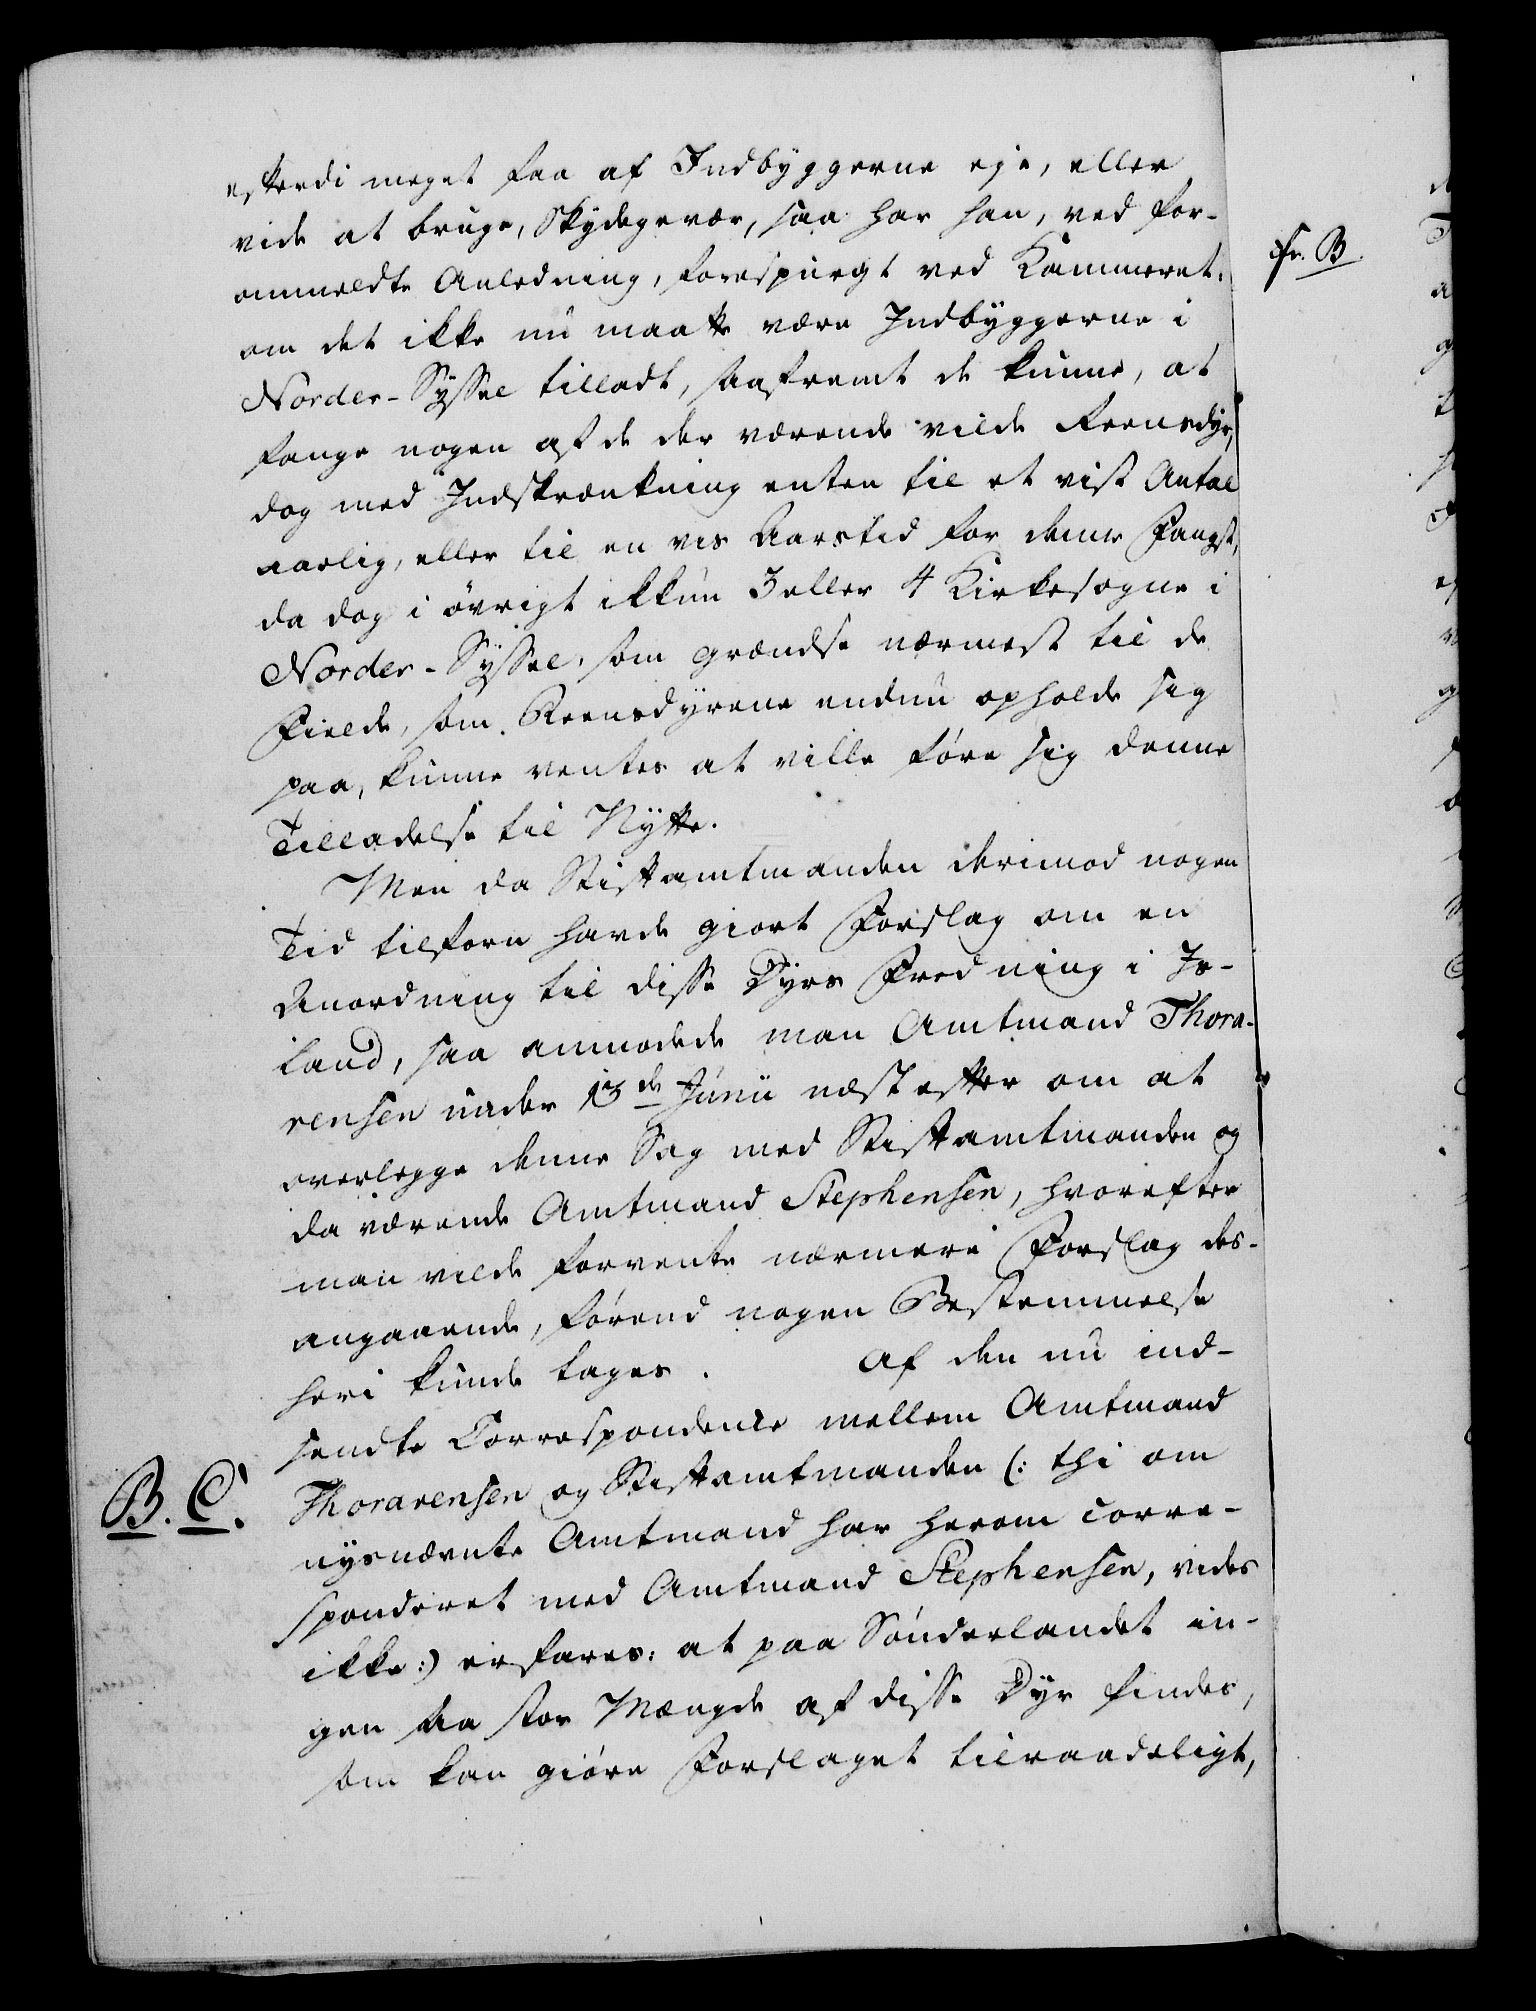 efterdi meget faa af Indbyggerne eje, eller
vide at bruge, Skydegevær, saa har han, ved for-
ommeldte Anledning, forespurgt ved Kammeret:
om det ikke nu maatte være Indbyggerne i
Norder-Syssel tilladt, saafremt de kunne, at
fange nogen af de der værende vilde Reensdyr,
dog med Indskrænkning enten til et vist Antal
aarlig, eller til en vis Aarstid for denne Fangst,
da dog i øvrigt ikkun 3 eller 4 Kirkesogne i
Norder-Syssel, som grændse nærmest til de
Fielde, som Reensdyrene endnu opholde sig
paa, kunne ventes at ville føre sig denne
Tilladelse til Nytte.
Men da Stiftamtmanden derimod nogen
Tid tilforn havde giort Forslag om en
Anordning til disse Dyrs Fredning i Is-
land, saa anmodede man Amtmand Thora-
rensen under 13de Junii næstefter om at
overlegge denne Sag med Stiftamtmanden og
da værende Amtmand Stephensen, hvorefter
man vilde forvente nærmere Forslag des-
angaaende, førend nogen Bestemmelse
heri kunde tages. Af den nu ind-
sendte Correspondence mellem Amtmand
B. C. Thorarensen og Stiftamtmanden (: thi om
nysnævnte Amtmand har herom corre-
sponderet med Amtmand Stephensen, vides
ikke :) erfares: at paa Sønderlandet in-
gen saa stor Mængde af disse Dyr findes,
som kan giøre Forslaget tilraadeligt,